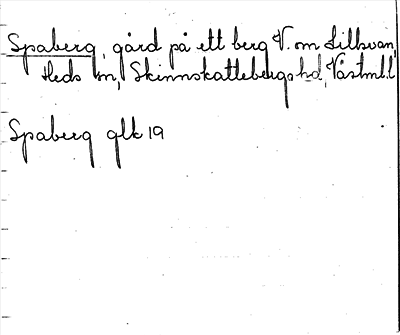 Spaberg, gård på ett berg V. om Lillsvan,
Heds sn, Skinnskattebergs hd, Västml. l
Spaberg glk 19